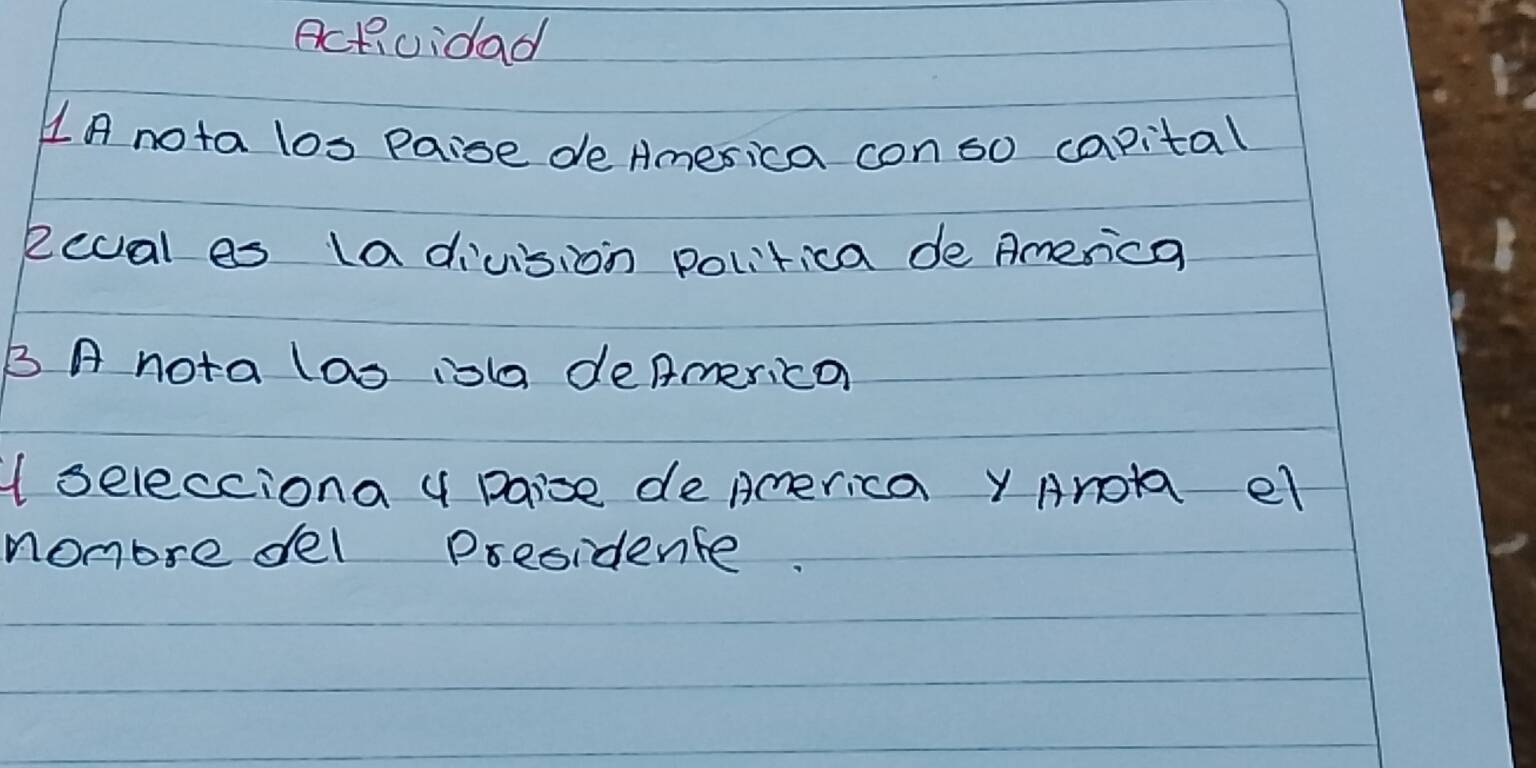 Actividad
1 A nota los Paise de America con so capital
2 cual es la división Politica de America
3 A nota las isla de America
4 selecciona 4 paise de America y Anota el
nombre del Presidente.